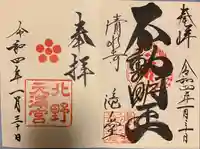 奉拝
不動明王
清水寺
令和四年一月三十日
奉拝
北野
天満宮
令和四年一月三十日